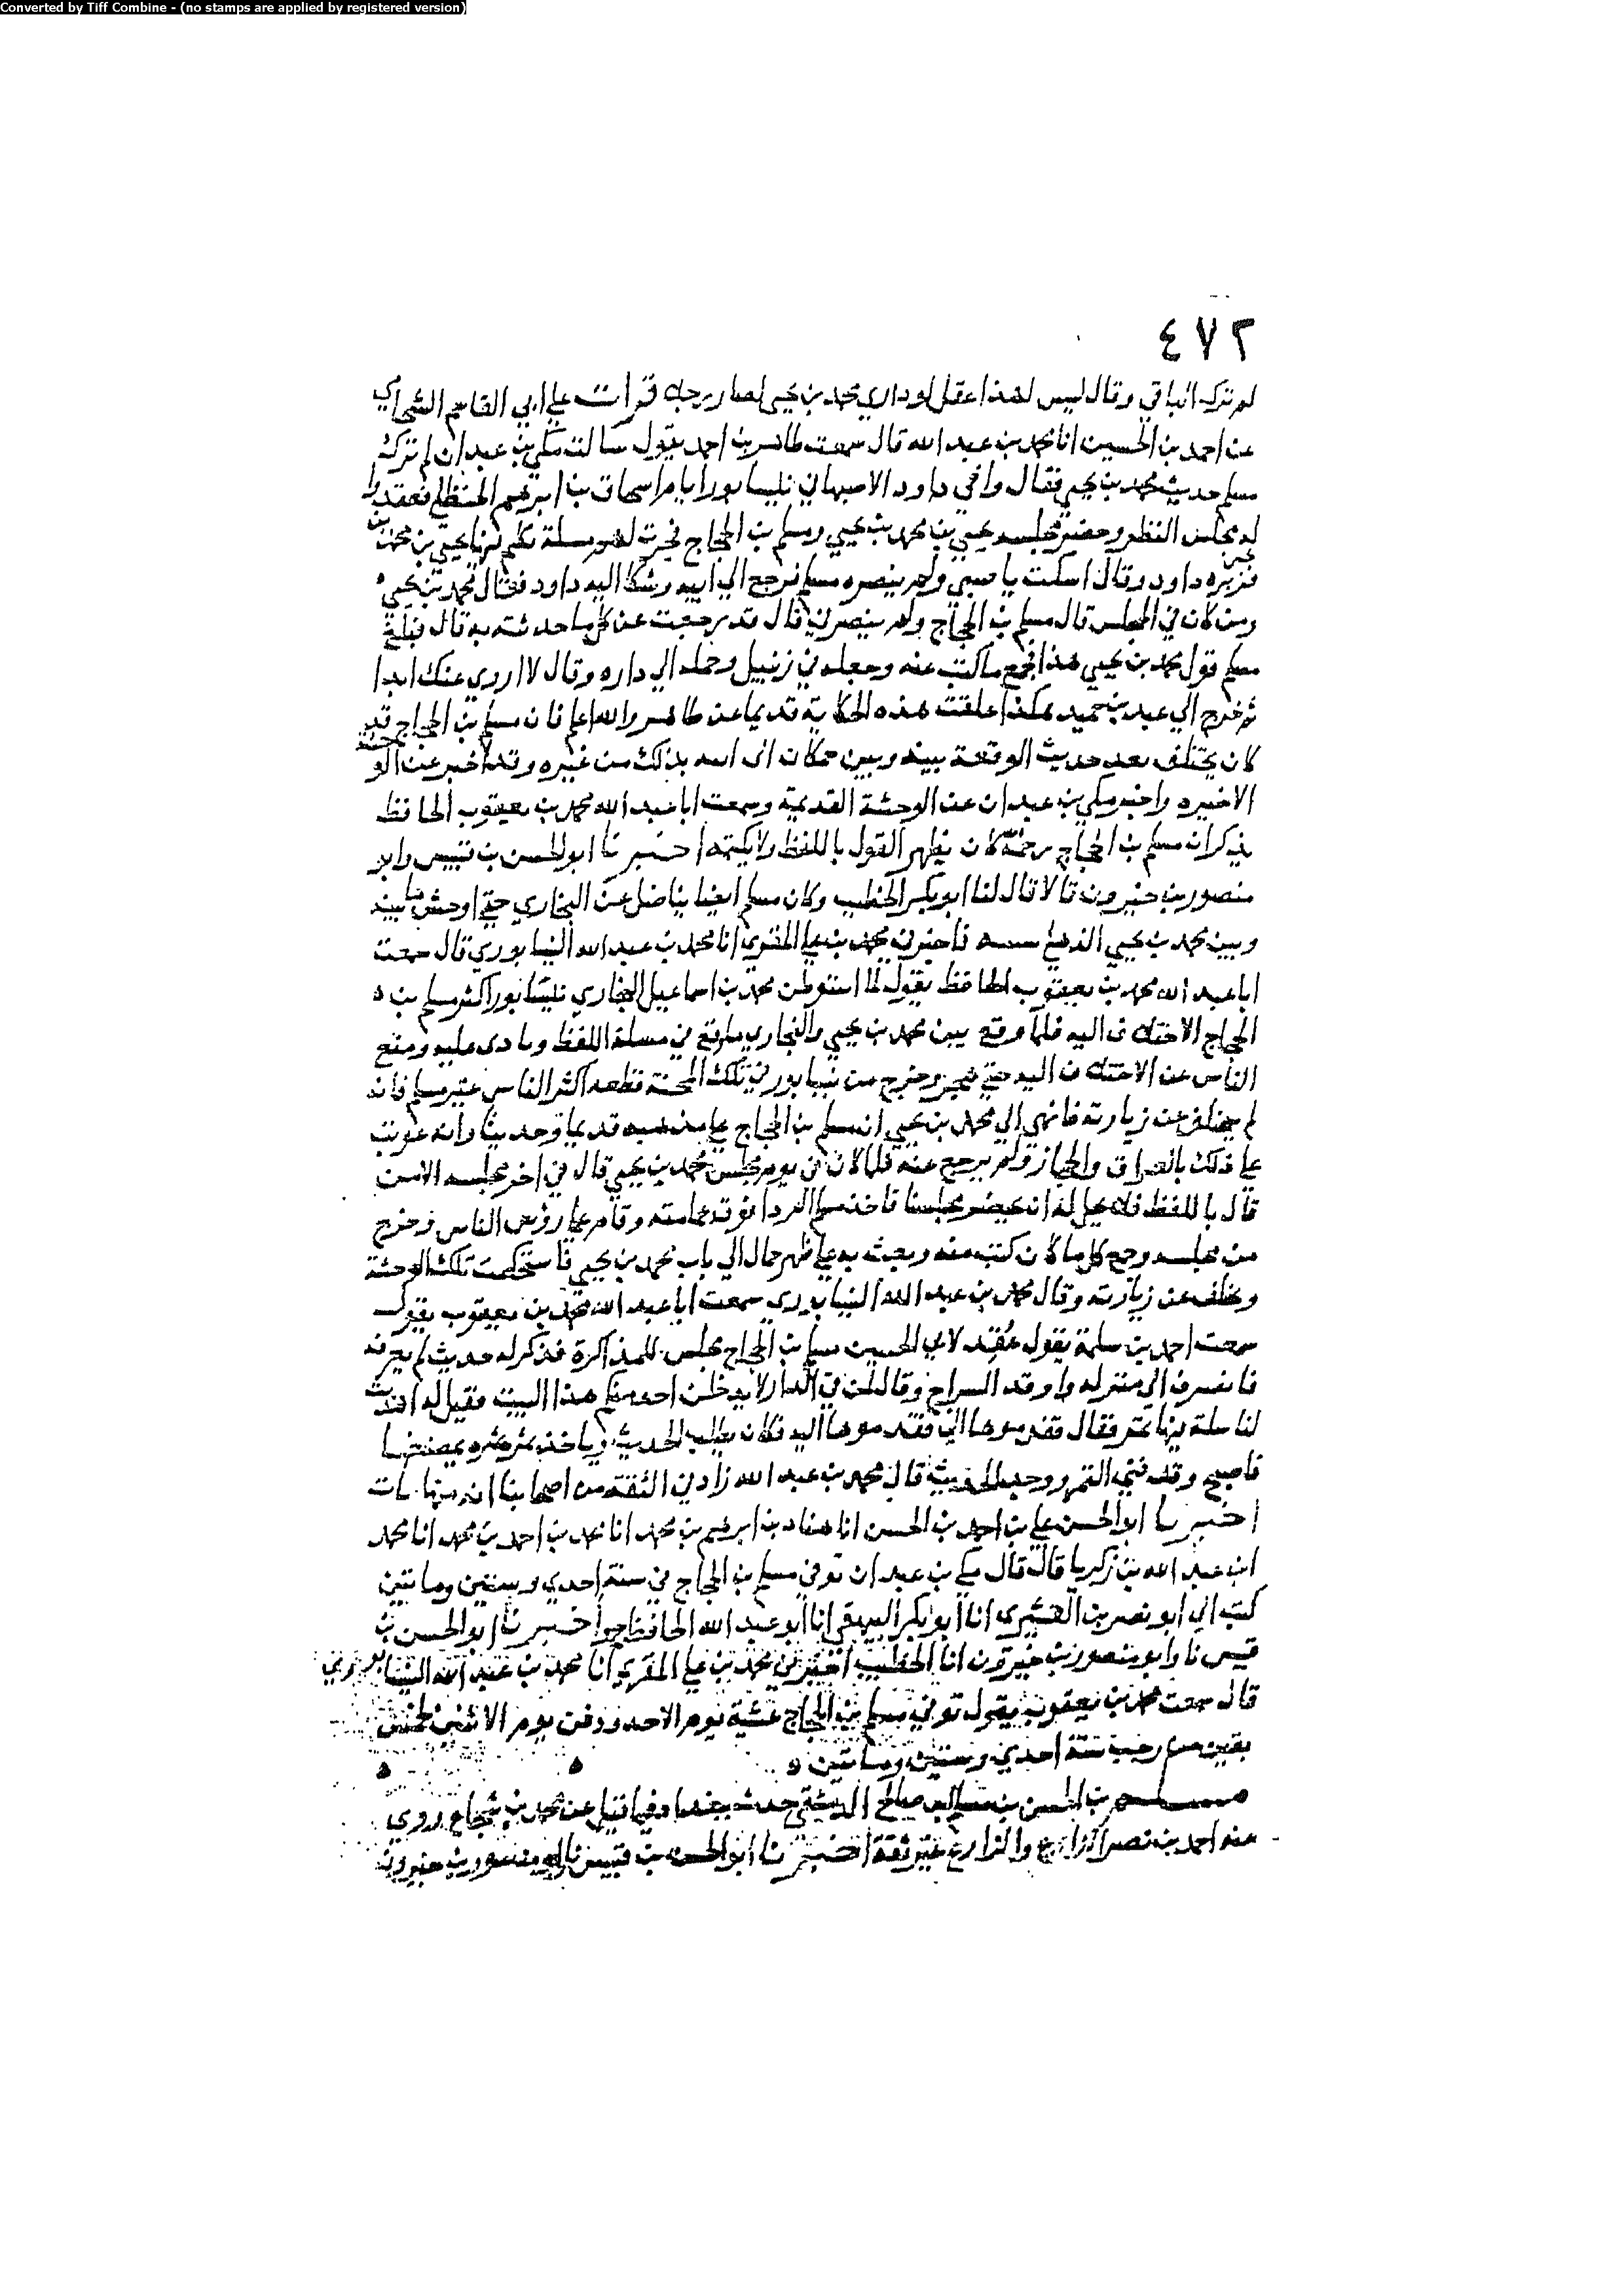 Converted by Tiff Combine - (no stamps are applied by registered version)
٤٧٢
لم ترك الباقي وقال ليس لهذا عقل لو داري محمد بن يحيى لصار رجلا قرات علي ابي القاسم الشحامي
عن احمد بن الحسين انا محمد بن عبد الله قال سمعت طاهر بن احمد يقول سالت مكي بن عبدان لم ترك
مسلم حديث محمد بن يحيى فقال وافي داود الاصبهاني نيسابور ايام اسحاق بن ابرهيم الحنظلي فعقدوا
له مجلس النظر وحضر مجلسه يحيى بن محمد بن يحيى ومسلم بن الحجاج فجرت لهم مسلة تكلم فيها يحيى بن محمد بن يحيى
فزبره داود وقال اسكت يا صبي ولم ينصره مسلم فرجع الي ابيه وشكا اليه داود فقال محمد بن يحيى
ومن كان في المجلس قال مسلم بن الحجاج ولم ينصرني قال قد رجعت عن كل ما حدثته به قال فبلغ
مسلم قول محمد بن يحيى هذا فجمع ما كتب عنه وجعله في زنبيل وحمله الي داره وقال لا اروي عنك ابدا
ثم خرج الي عبد بن حميد هكذا علقت هذه الحكاية قديما عن طاهر والله اعلم فان مسلم بن الحجاج قد
كان يختلف بعد حديث الوقعة بينه وبين وقد اخبر عن الوحشة
الاخيره واخبر مكي بن عبدان عن الوحشة القديمة وسمعت ابا عبد الله محمد بن يعقوب الحافظ
يذكر ان مسلم بن الحجاج رحمه الله كان يظهر القول باللفظ ولا يكتمه اخبرنا ابو الحسن بن قبيس وابو
منصور بن خيرون قالا قال لنا ابو بكر الخطيب وكان مسلم ايضا يناضل عن البخاري حتى اوحش ما بينه
وبين محمد بن يحيى الذهلي بسببه فاخبرني محمد بن علي المقري انا محمد بن عبد الله النيسابوري قال سمعت
ابا عبد الله محمد بن يعقوب الحافظ يقول لما استوطن محمد بن اسماعيل البخاري نيسابور اكثر مسلم بن
الحجاج الاختلاف اليه فلما وقع بين محمد بن يحيى والبخاري ما وقع في مسلة اللفظ ونادى عليه ومنع
الناس عن الاختلاف اليه حتى هجر وخرج من نيسابور في تلك المحنة قطعه اكثر الناس غير مسلم فانه
لم يتخلف عن زيارته فانهي الي محمد بن يحيى ان مسلم بن الحجاج علي مذهبه قديما وحديثا وانه عوتب
علي ذلك بالعراق والحجاز ولم يرجع عنه فلما كان في يوم مجلس محمد بن يحيى قال في اخر مجلسه الا من
قال باللفظ فلا يحل له ان يحضر مجلسنا فاخذ مسلم الردا فوق عمامته وقام علي رؤس الناس وخرج
من مجلسه وجمع كل ما كان كتب منه وبعث به علي ظهر حمال الي باب محمد بن يحيى فاستحكمت تلك الوحشة
وتخلف عن زيارته وقال محمد بن عبد الله النيسابوري سمعت ابا عبد الله محمد بن يعقوب يقول
سمعت احمد بن سلمة يقول عُقِد لابي الحسين مسلم بن الحجاج مجلس للمذاكرة فذكر له حديث لم يعرفه
فانصرف الي منزله واوقد السراج وقال لمن في الدار لا يدخلن احد منكم هذا البيت فقيل له اهديت
لنا سلة فيها تمر فقال قدموها الي فقدموها اليه فكان يطلب الحديث وياخذ تمرة تمرة يمضغها
فاصبح وقد فني التمر ووجد الحديث قال محمد بن عبد الله زادني الثقة من اصحابنا انه منها مات
اخبرنا ابو الحسن علي بن احمد بن الحسن انا هناد بن ابرهيم بن محمد انا محمد بن احمد بن محمد انا محمد
ابن عبد الله بن زكريا قال قال مكي بن عبدان توفي مسلم بن الحجاج في سنة احدي وستين ومائتين
كتب الي ابو نصر بن القشيري انا ابو بكر البيهقي انا ابو عبد الله الحافظ ح واخبرنا ابو الحسن بن
قبيس نا وابو منصور بن خيرون انا الخطيب اخبرني محمد بن علي المقري انا محمد بن عبد الله النيسابوري
قال سمعت محمد بن يعقوب يقول توفي مسلم بن الحجاج عشية يوم الاحد ودفن يوم الاثنين لخمس
بقين من رجب سنة احدي وستين ومائتين ه
مسلم بن الحسن بن مسلم صالح الدمشقي حدث ببغداد فيما قيل عن محمد بن شجاع روي
عنه احمد بن نصر الزارع والزارع غير ثقة اخبرنا ابو الحسن بن قبيس نا وابو منصور بن خيرون